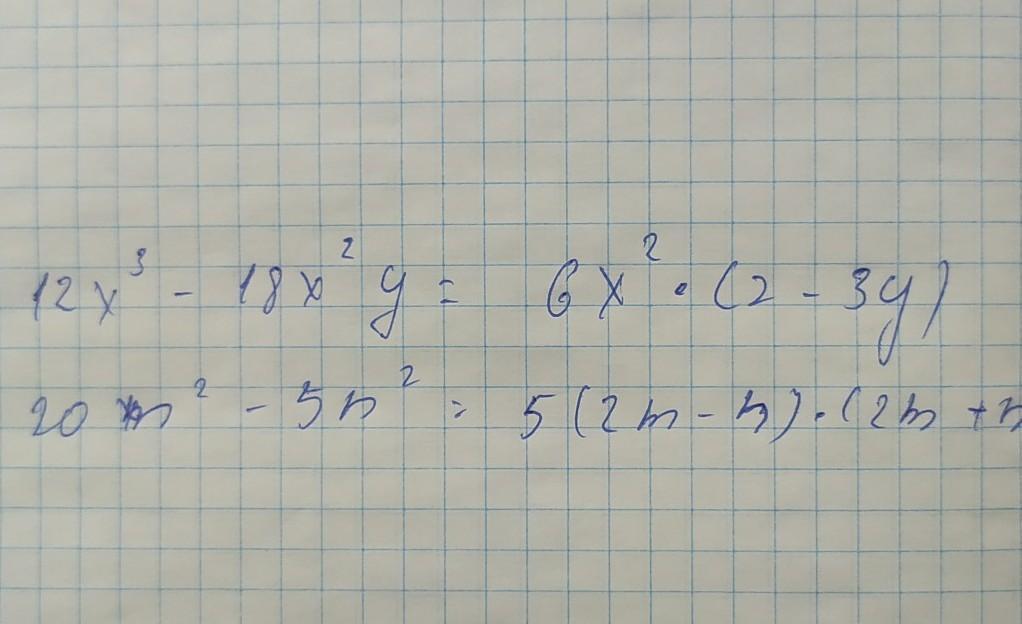 12x³ - 18x²y = 6x² · (2 - 3y)
20m² - 5n² = 5(2m - n) · (2m + n